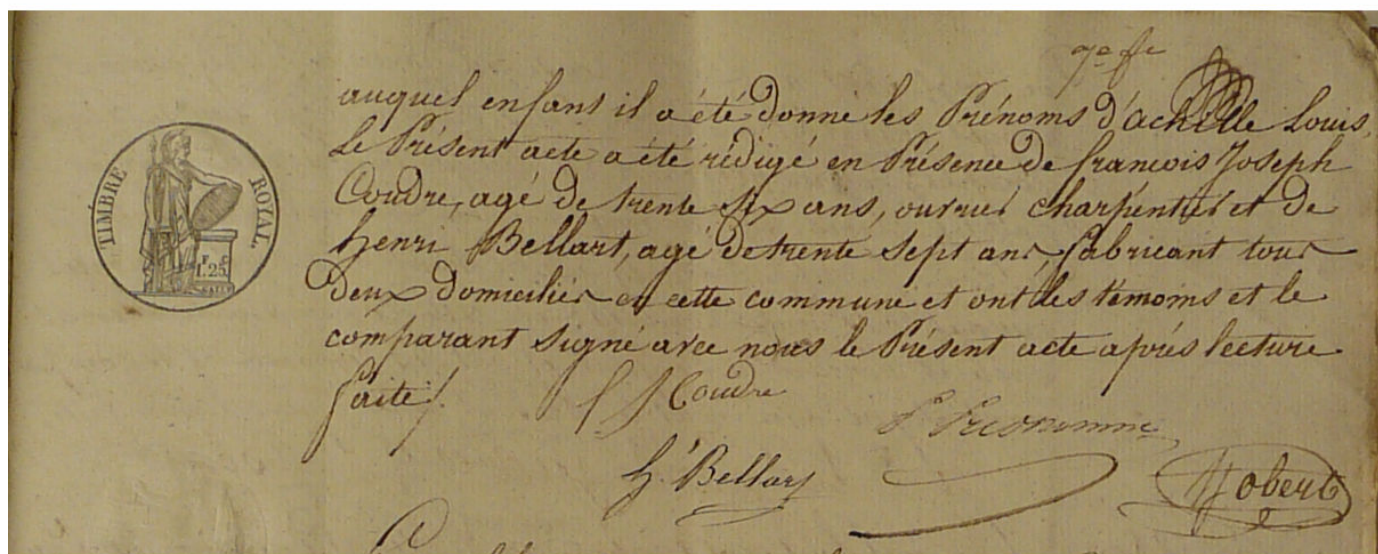 auquel enfans il a été donné les Prénoms d'achille Louis,
Le Présent acte a été rédigé en Présence de francois Joseph
Coudre, agé de trente six ans, ouvrier charpentier et de
henri Bellart, agé de trente sept ans, fabricant tous
deux domiciliés en cette commune et ont les témoins et le
comparant signé avec nous le Présent acte après lecture
faite
TIMBRE ROYAL.
F C
1.25
f J Coudre
h. Bellart